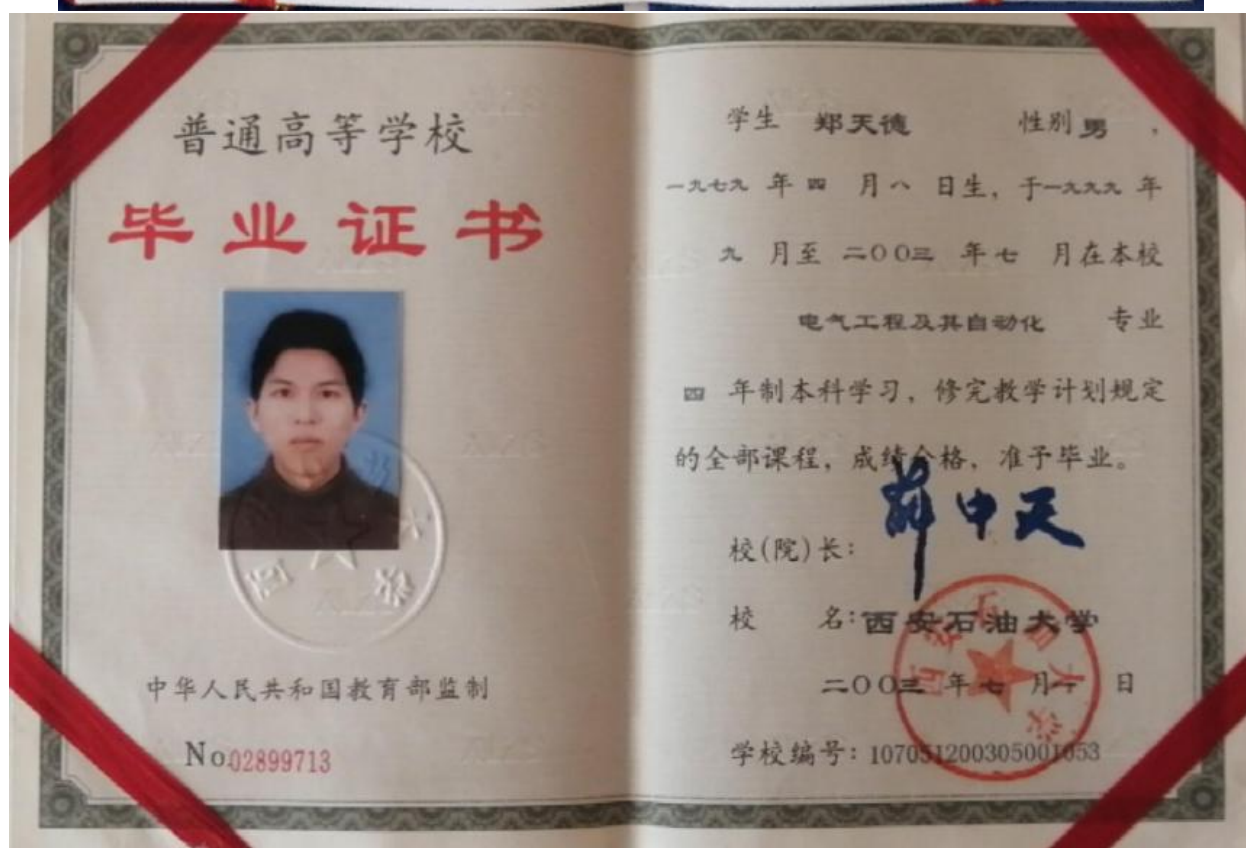 普通高等学校
毕业证书
中华人民共和国教育部监制
No.02899713
学生 郑天德 性别 男 ,
一九七九 年 四 月 八 日生, 于一九九九 年
九 月至 二〇〇三 年 七 月在本校
电气工程及其自动化 专业
四 年制本科学习, 修完教学计划规定
的全部课程, 成绩合格, 准予毕业。
薛中天
校(院)长:
校 名: 西安石油大学
西安石油大学
二〇〇三 年 七 月 一 日
学校编号: 107051200305001053